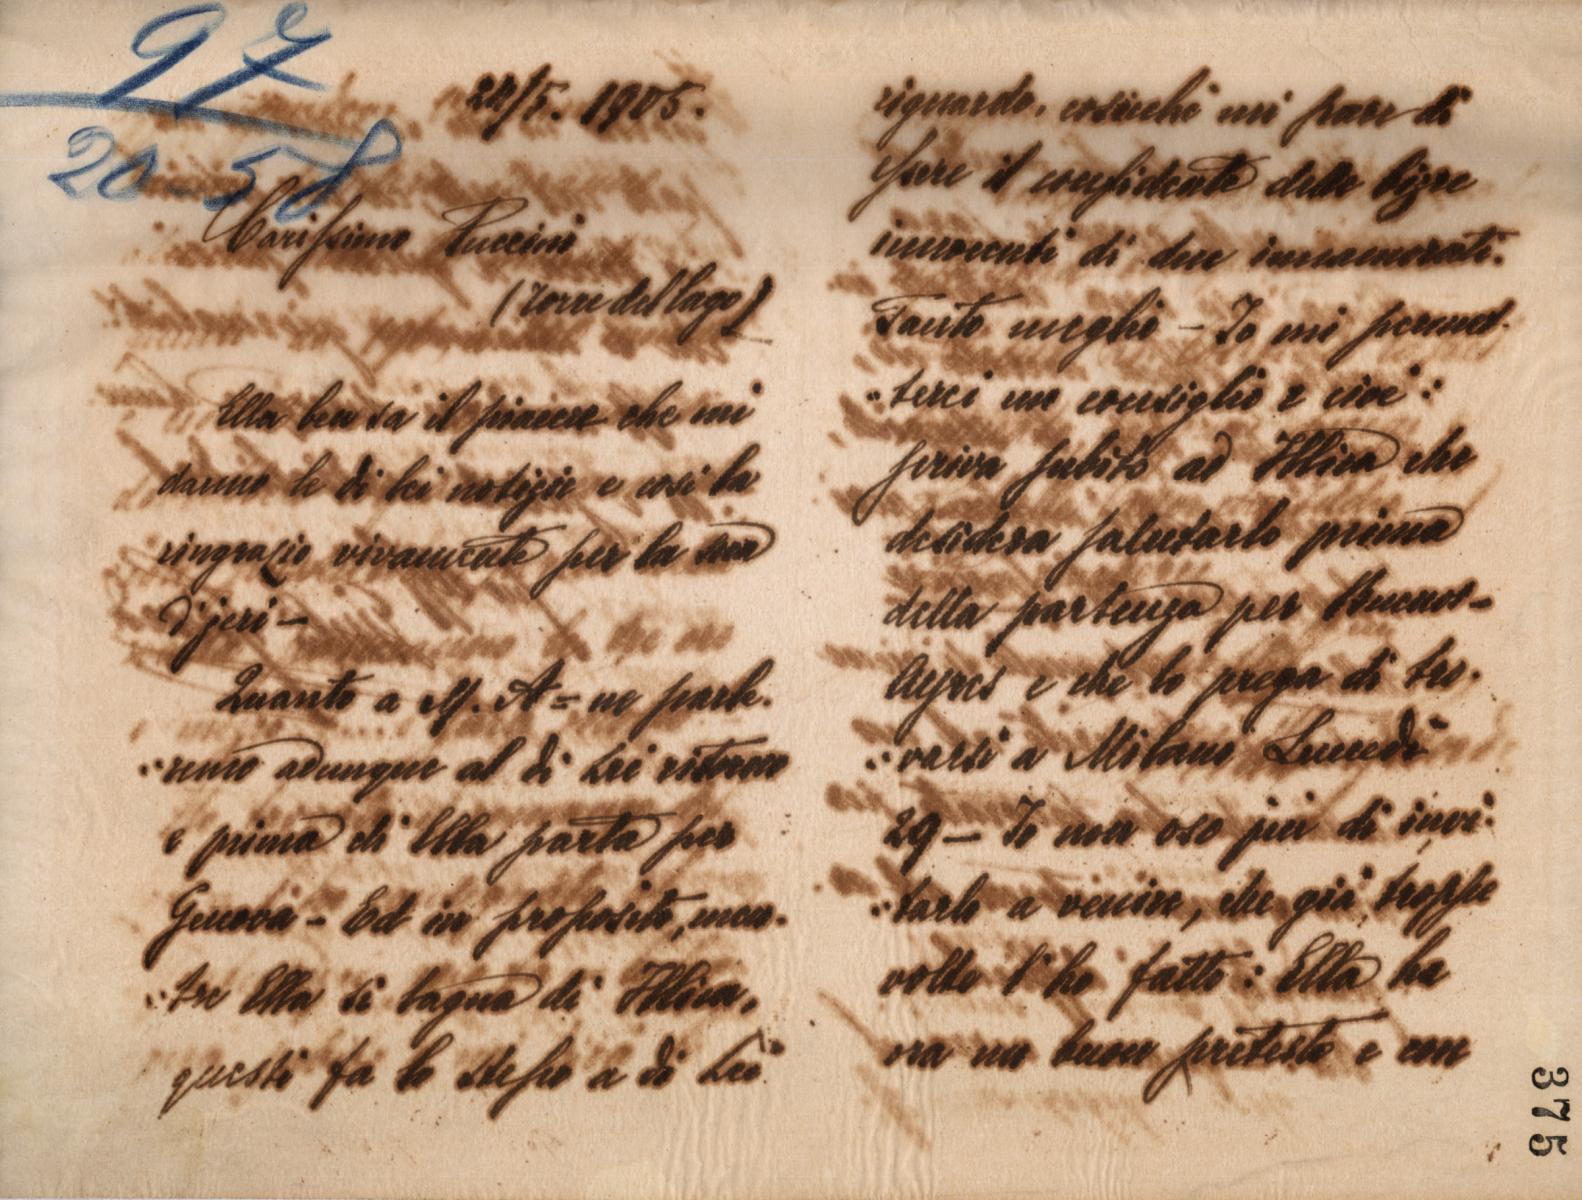 97
20-58
24/5. 1905.
Carissimo Puccini
(Torre del Lago)
Ella ben sa il piacere che mi
danno le di lei notizie e così la
ringrazio vivamente per la sua
d'jeri-
Quanto a M. A= ne parle-
remo adunque al di Lei ritorno
e prima di Ella parta per
Genova - Ed in proposito, men-
tre Ella si lagna di Illica,
questi fa lo stesso a di Lei
riguardo, cosicché mi pare di
essere il confidente delle bizze
innocenti di due innamorati.
Tanto meglio - Io mi permet-
terei un consiglio e cioè:
scriva subito ad Illica che
desidera salutarlo prima
della partenza per Buenos-
Ayres e che lo prega di tro-
varsi a Milano Lunedì
29 - Io non oso più di invi-
tarlo a venire, che già troppe
volte l'ho fatto: Ella ha
ora un buon pretesto e con
375